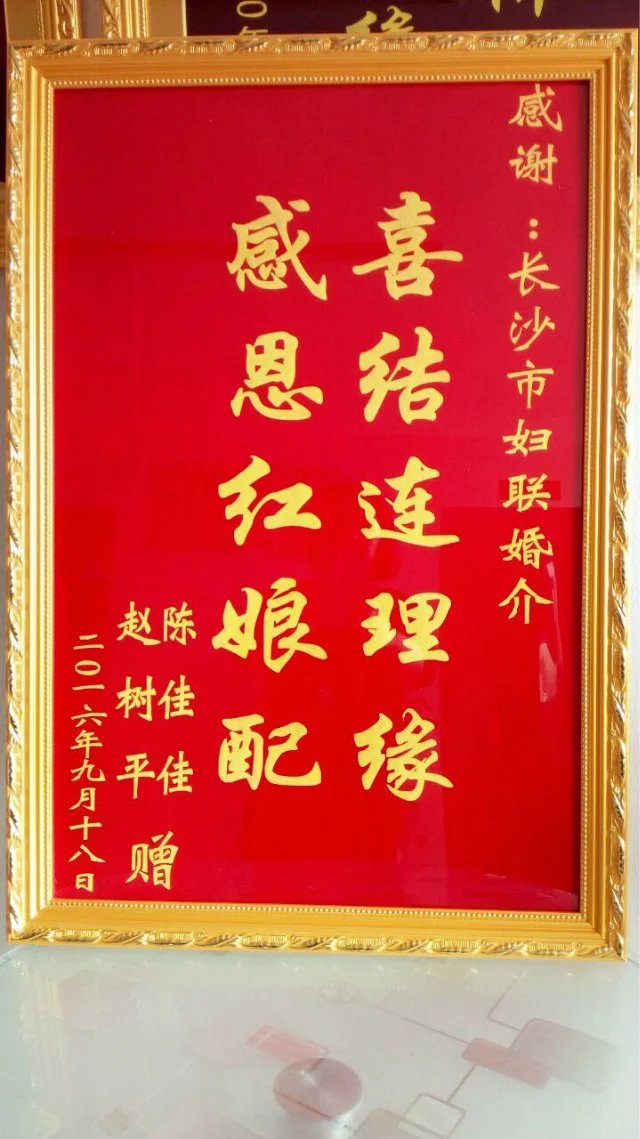 感谢：长沙市妇联婚介
喜结连理缘
感恩红娘配
陈佳佳
赵树平
赠
二〇一六年九月十八日
〇年
缘